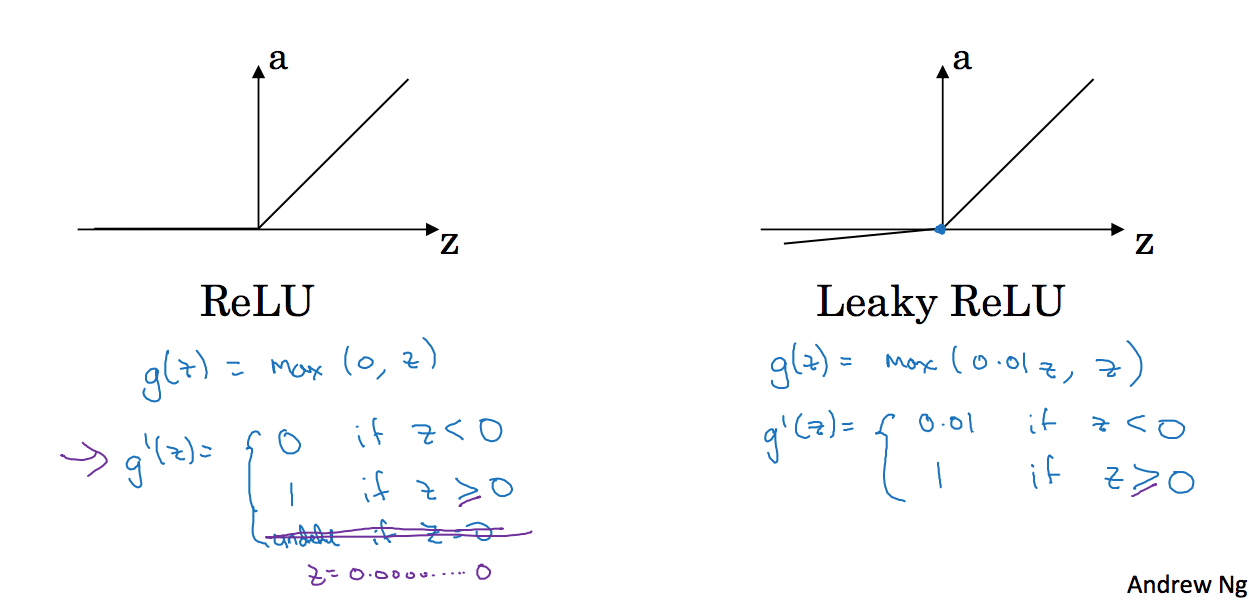 a
z
ReLU
g(z) = max (0, z)
g'(z)= { 0 if z < 0
1 if z ⩾ 0
if z = 0
z = 0.0000.....0
a
z
Leaky ReLU
g(z) = max (0.01z, z)
g'(z)= { 0.01 if z < 0
1 if z ⩾ 0
Andrew Ng